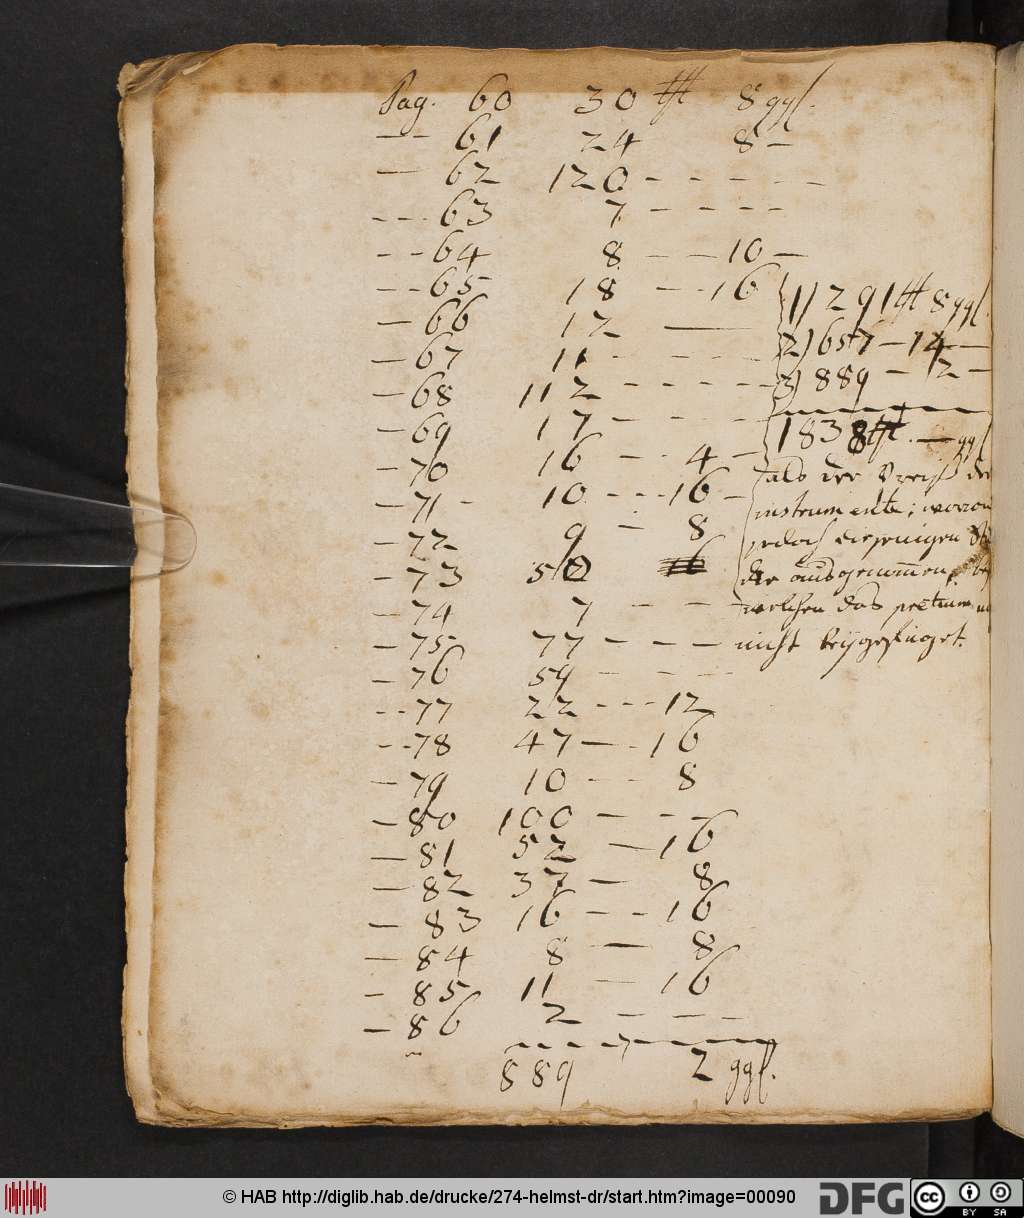 Pag. 60 30 thl 8 ggl.
-- 61 24 8 -
- 62 120 - - - - -
--- 63 7 - - - -
--- 64 8 - - 10 -
-- 65 18 - 16
- 66 12 -
- 67 11 - - - -
- 68 112 - - - -
- 69 17 - - - -
- 70 16 - - 4 -
- 71 - 10 - - - 16 -
- 72 9 - 8
- 73 50
- 74 7 - - -
- 75 77 - - - -
- 76 59 - - - -
--- 77 22 --- 12
--- 78 47 - - 16
- 79 10 - - 8
- 80 100 - - - -
- 81 52 - 16
- 82 37 - 8
- 83 16 - - - 16
- 84 8 - 8
- 85 11 - 16
- 86 2 - - - -
889 2 ggl.
1) 291 thl 8 ggl.
2) 657 - 14 -
3) 889 - 2 -
1838 thl. - ggl
als der Preiß der
instrumente; wovon
jedoch diejenigen
die ausgenommen, bey
welchen das pretium
nicht beygefüget.
© HAB http://diglib.hab.de/drucke/274-helmst-dr/start.htm?image=00090
DFG
cc BY SA